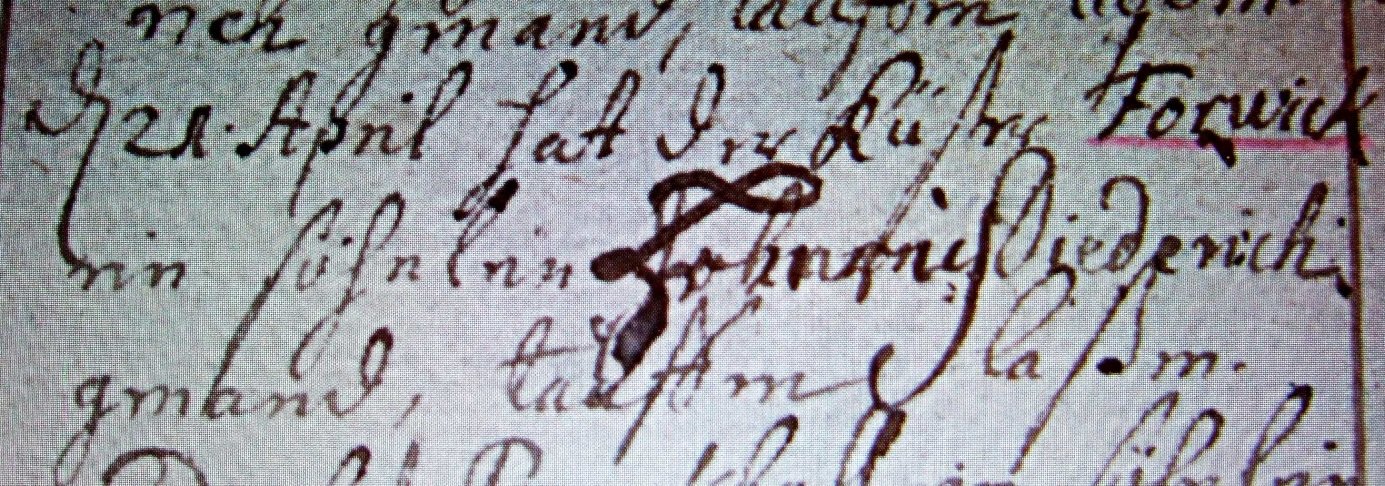 rich genand, tauffen laßen
d. 21. April hat der Küster Forwick
ein söhnlein Johannis Diederich
genand, tauffen laßen.
söhnlein